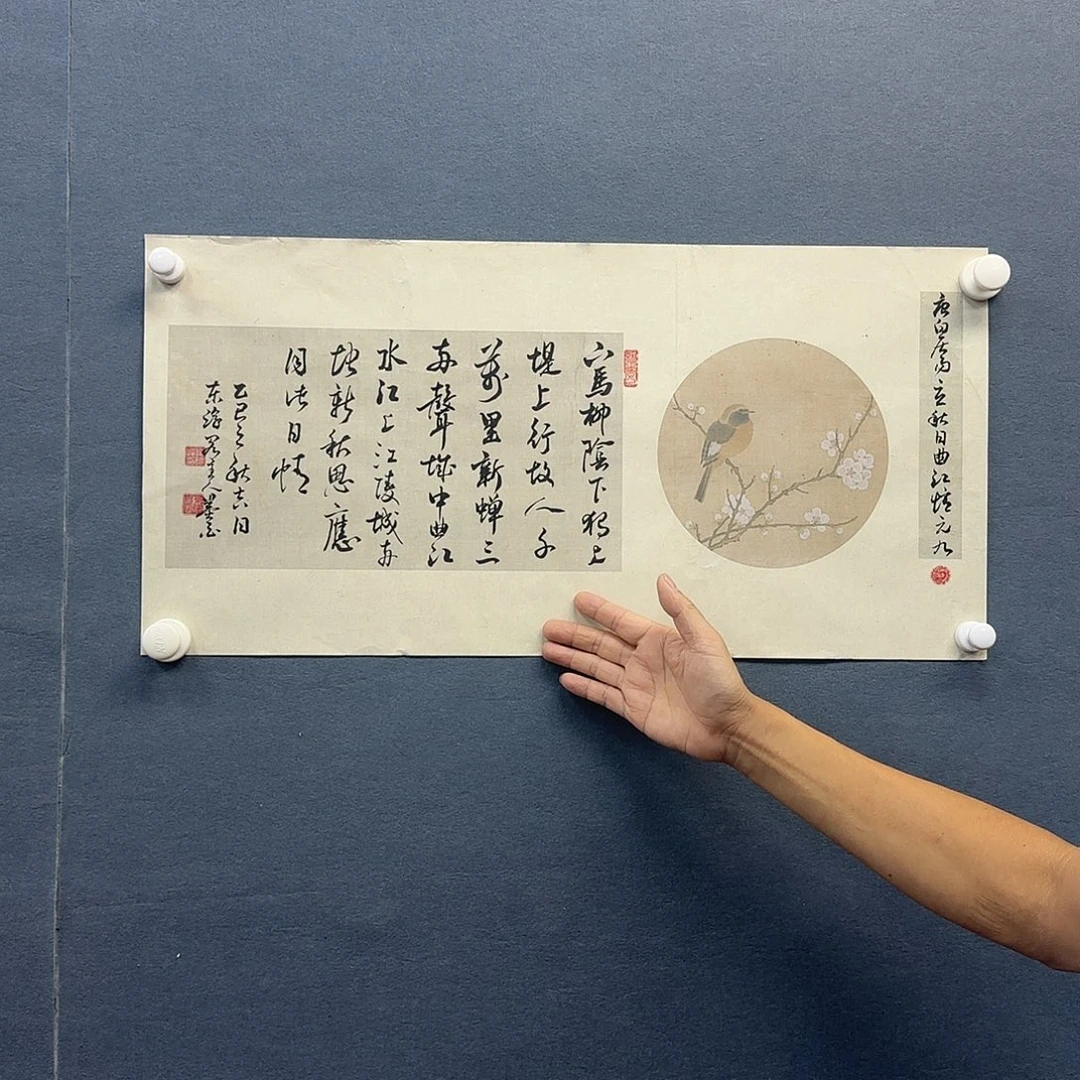 唐白居易立秋日曲江憶元九
下馬柳陰下獨上
堤上行故人千
萬里新蟬三
兩聲城中曲江
水江上江陵城兩
地新秋思應
同此日情
乙巳之秋吉日